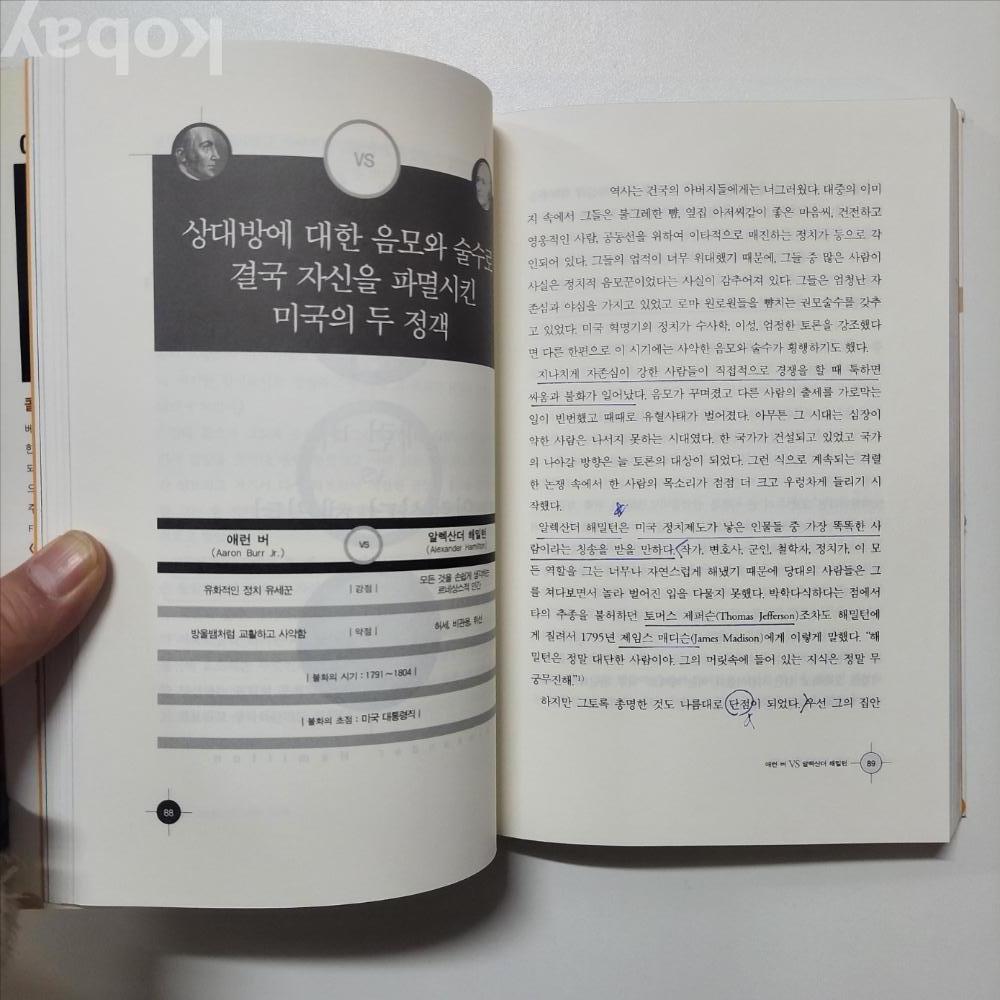 kobay
VS
상대방에 대한 음모와 술수로
결국 자신을 파멸시킨
미국의 두 정객
애런 버
(Aaron Burr Jr.)
VS
알렉산더 해밀턴
(Alexander Hamilton)
유화적인 정치 유세꾼
| 강점 |
모든 것을 손쉽게 생각하는
르네상스적 인간
방울뱀처럼 교활하고 사악함
| 약점 |
허세, 비관용, 위선
| 불화의 시기 : 1791~1804 |
| 불화의 초점 : 미국 대통령직 |
88
역사는 건국의 아버지들에게는 너그러웠다. 대중의 이미
지 속에서 그들은 불그레한 뺨, 옆집 아저씨같이 좋은 마음씨, 건전하고
영웅적인 사람, 공동선을 위하여 이타적으로 매진하는 정치가 등으로 각
인되어 있다. 그들의 업적이 너무 위대했기 때문에, 그들 중 많은 사람이
사실은 정치적 음모꾼이었다는 사실이 감추어져 있다. 그들은 엄청난 자
존심과 야심을 가지고 있었고 로마 원로원들을 뺨치는 권모술수를 갖추
고 있었다. 미국 혁명기의 정치가 수사학, 이성, 엄정한 토론을 강조했다
면 다른 한편으로 이 시기에는 사악한 음모와 술수가 횡행하기도 했다.
지나치게 자존심이 강한 사람들이 직접적으로 경쟁을 할 때 툭하면
싸움과 불화가 일어났다. 음모가 꾸며졌고 다른 사람의 출세를 가로막는
일이 빈번했고 때때로 유혈사태가 벌어졌다. 아무튼 그 시대는 심장이
약한 사람은 나서지 못하는 시대였다. 한 국가가 건설되고 있었고 국가
의 나아갈 방향은 늘 토론의 대상이 되었다. 그런 식으로 계속되는 격렬
한 논쟁 속에서 한 사람의 목소리가 점점 더 크고 우렁차게 들리기 시
작했다.
알렉산더 해밀턴은 미국 정치제도가 낳은 인물들 중 가장 똑똑한 사
람이라는 칭송을 받을 만하다. 작가, 변호사, 군인, 철학자, 정치가, 이 모
든 역할을 그는 너무나 자연스럽게 해냈기 때문에 당대의 사람들은 그
를 쳐다보면서 놀라 벌어진 입을 다물지 못했다. 박학다식하다는 점에서
타의 추종을 불허하던 토머스 제퍼슨(Thomas Jefferson)조차도 해밀턴에
게 질려서 1795년 제임스 매디슨(James Madison)에게 이렇게 말했다. "해
밀턴은 정말 대단한 사람이야. 그의 머릿속에 들어 있는 지식은 정말 무
궁무진해."1)
하지만 그토록 총명한 것도 나름대로 단점이 되었다. 우선 그의 집안
애런 버 VS 알렉산더 해밀턴
89